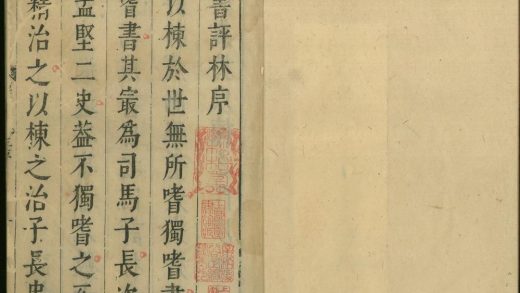 書評林序
以棟於世無所嗜獨嗜書
嗜書其㝡為司馬子長
孟堅二史葢不獨嗜之
精治之以棟之治子長史